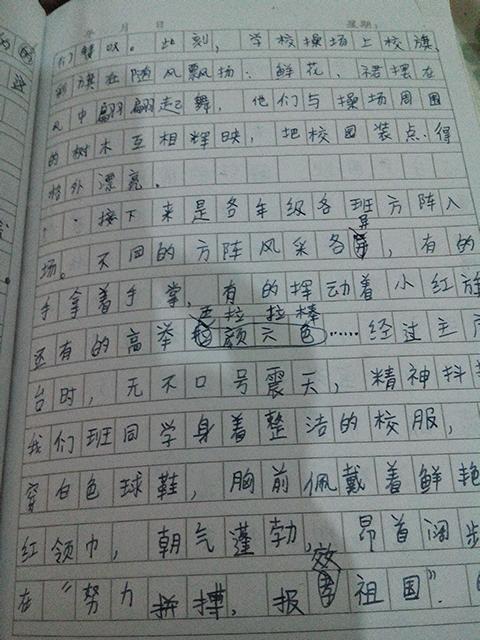 年 月 日 星期:
们特以。此刻,学校操场上校旗,
彩旗在随风飘扬.鲜花,裙摆在
风中翩翩起舞,他们与操场周围
的树木互相辉映,把校园装点得
格外漂亮.
接下来是各年级各班方阵入
场。不同的方阵风采各异,有的
手拿着手掌,有的挥动着小红旗
拉拉棒
还有的高举颜六色……经过主席
台时,无不口号震天,精神抖擞
我们班同学身着整洁的校服,
穿白色球鞋,胸前佩戴着鲜艳
红领巾,朝气蓬勃,昂首阔步
效
在“努力拼搏,报祖国”.